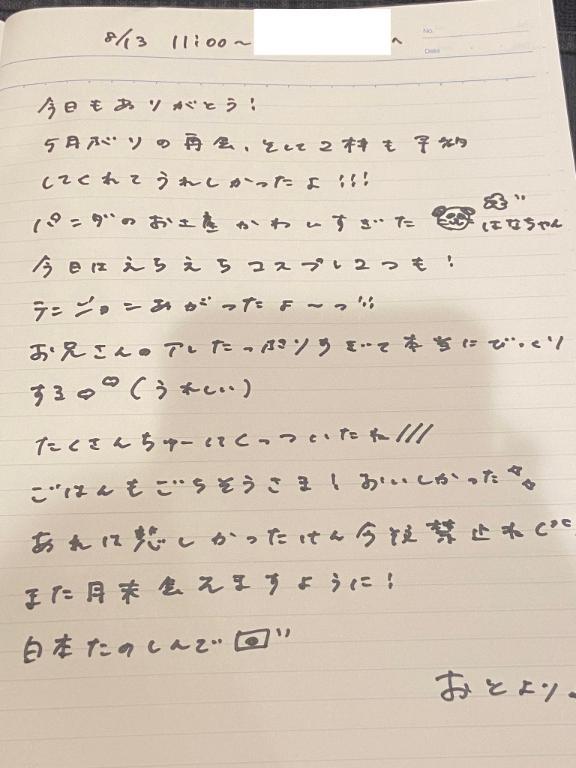 8/13 11:00〜 へ
No.
Date
今日もありがとう!
5月ぶりの再会、そして2枠も予約
してくれてうれしかったよ!!!
パンダのお土産かわいすぎた はなちゃん
今日はえちえちコスプレ2つも!
テンションあがったよ〜っ!!!
お兄さんのアレたっぷりすぎて本当にびっくり
する♡♡(うれしい)
たくさんちゅーしてくっついたね///
ごはんもごちそうさま!おいしかった
あれは悲しかったけん今後禁止ね
また月末会えますように!
日本たのしんで
おとより。